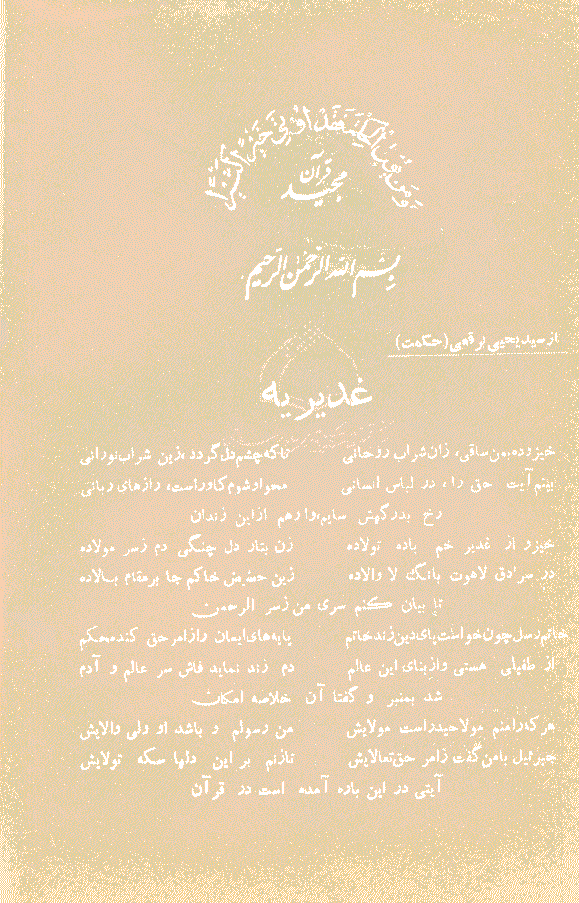 وَمَن يُؤتَ الحِكمَةَ فَقَد اُوتِیَ خَیراً کَثیراً
قرآن مجید
بسم الله الرحمن الرحیم
از سید یحیی برقعی (حکمت)
غدیریه
خیز و ده بمن ساقی، زان شراب روحانی تا که چشم دل گردد، زین شراب نورانی
بینم آیت حق را، در لباس انسانی محو او شوم کاوراست، رازهای ربانی
رخ بدرگهش سایم، وارهم ازاین زندان
خیز و از غدیر خم باده تولاده زن بتار دل چنگی دم زسر مولاده
در سرادق لاهوت بانک لا والاده زین حضیض خاکم جا بر مقام بالاده
تا بیان کنم سری من زسر الرحمن
خاتم رسل چون خواست پای دین زند خاتم پایه‌های ایمان را از امر حق کند محکم
از طفیلی هستی وازبنای این عالم دم زند نماید فاش سر عالم و آدم
شد بمنبر و گفتا آن خلاصه امکان
هرکه رامنم مولا حیدراست مولایش من رسولم و باشد او ولی والایش
جبرئیل بامن گفت زامر حق‌تعالایش تازنم بر این دلها سکه تولایش
آیتی در این باره آمده است در قرآن